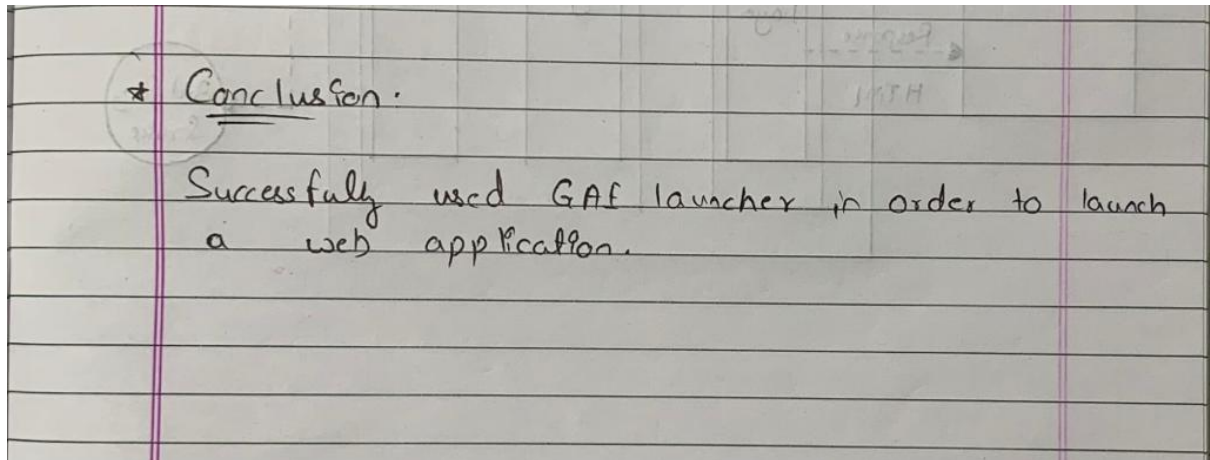 * Conclusion.
Successfully used GAE launcher in order to launch
a web application.